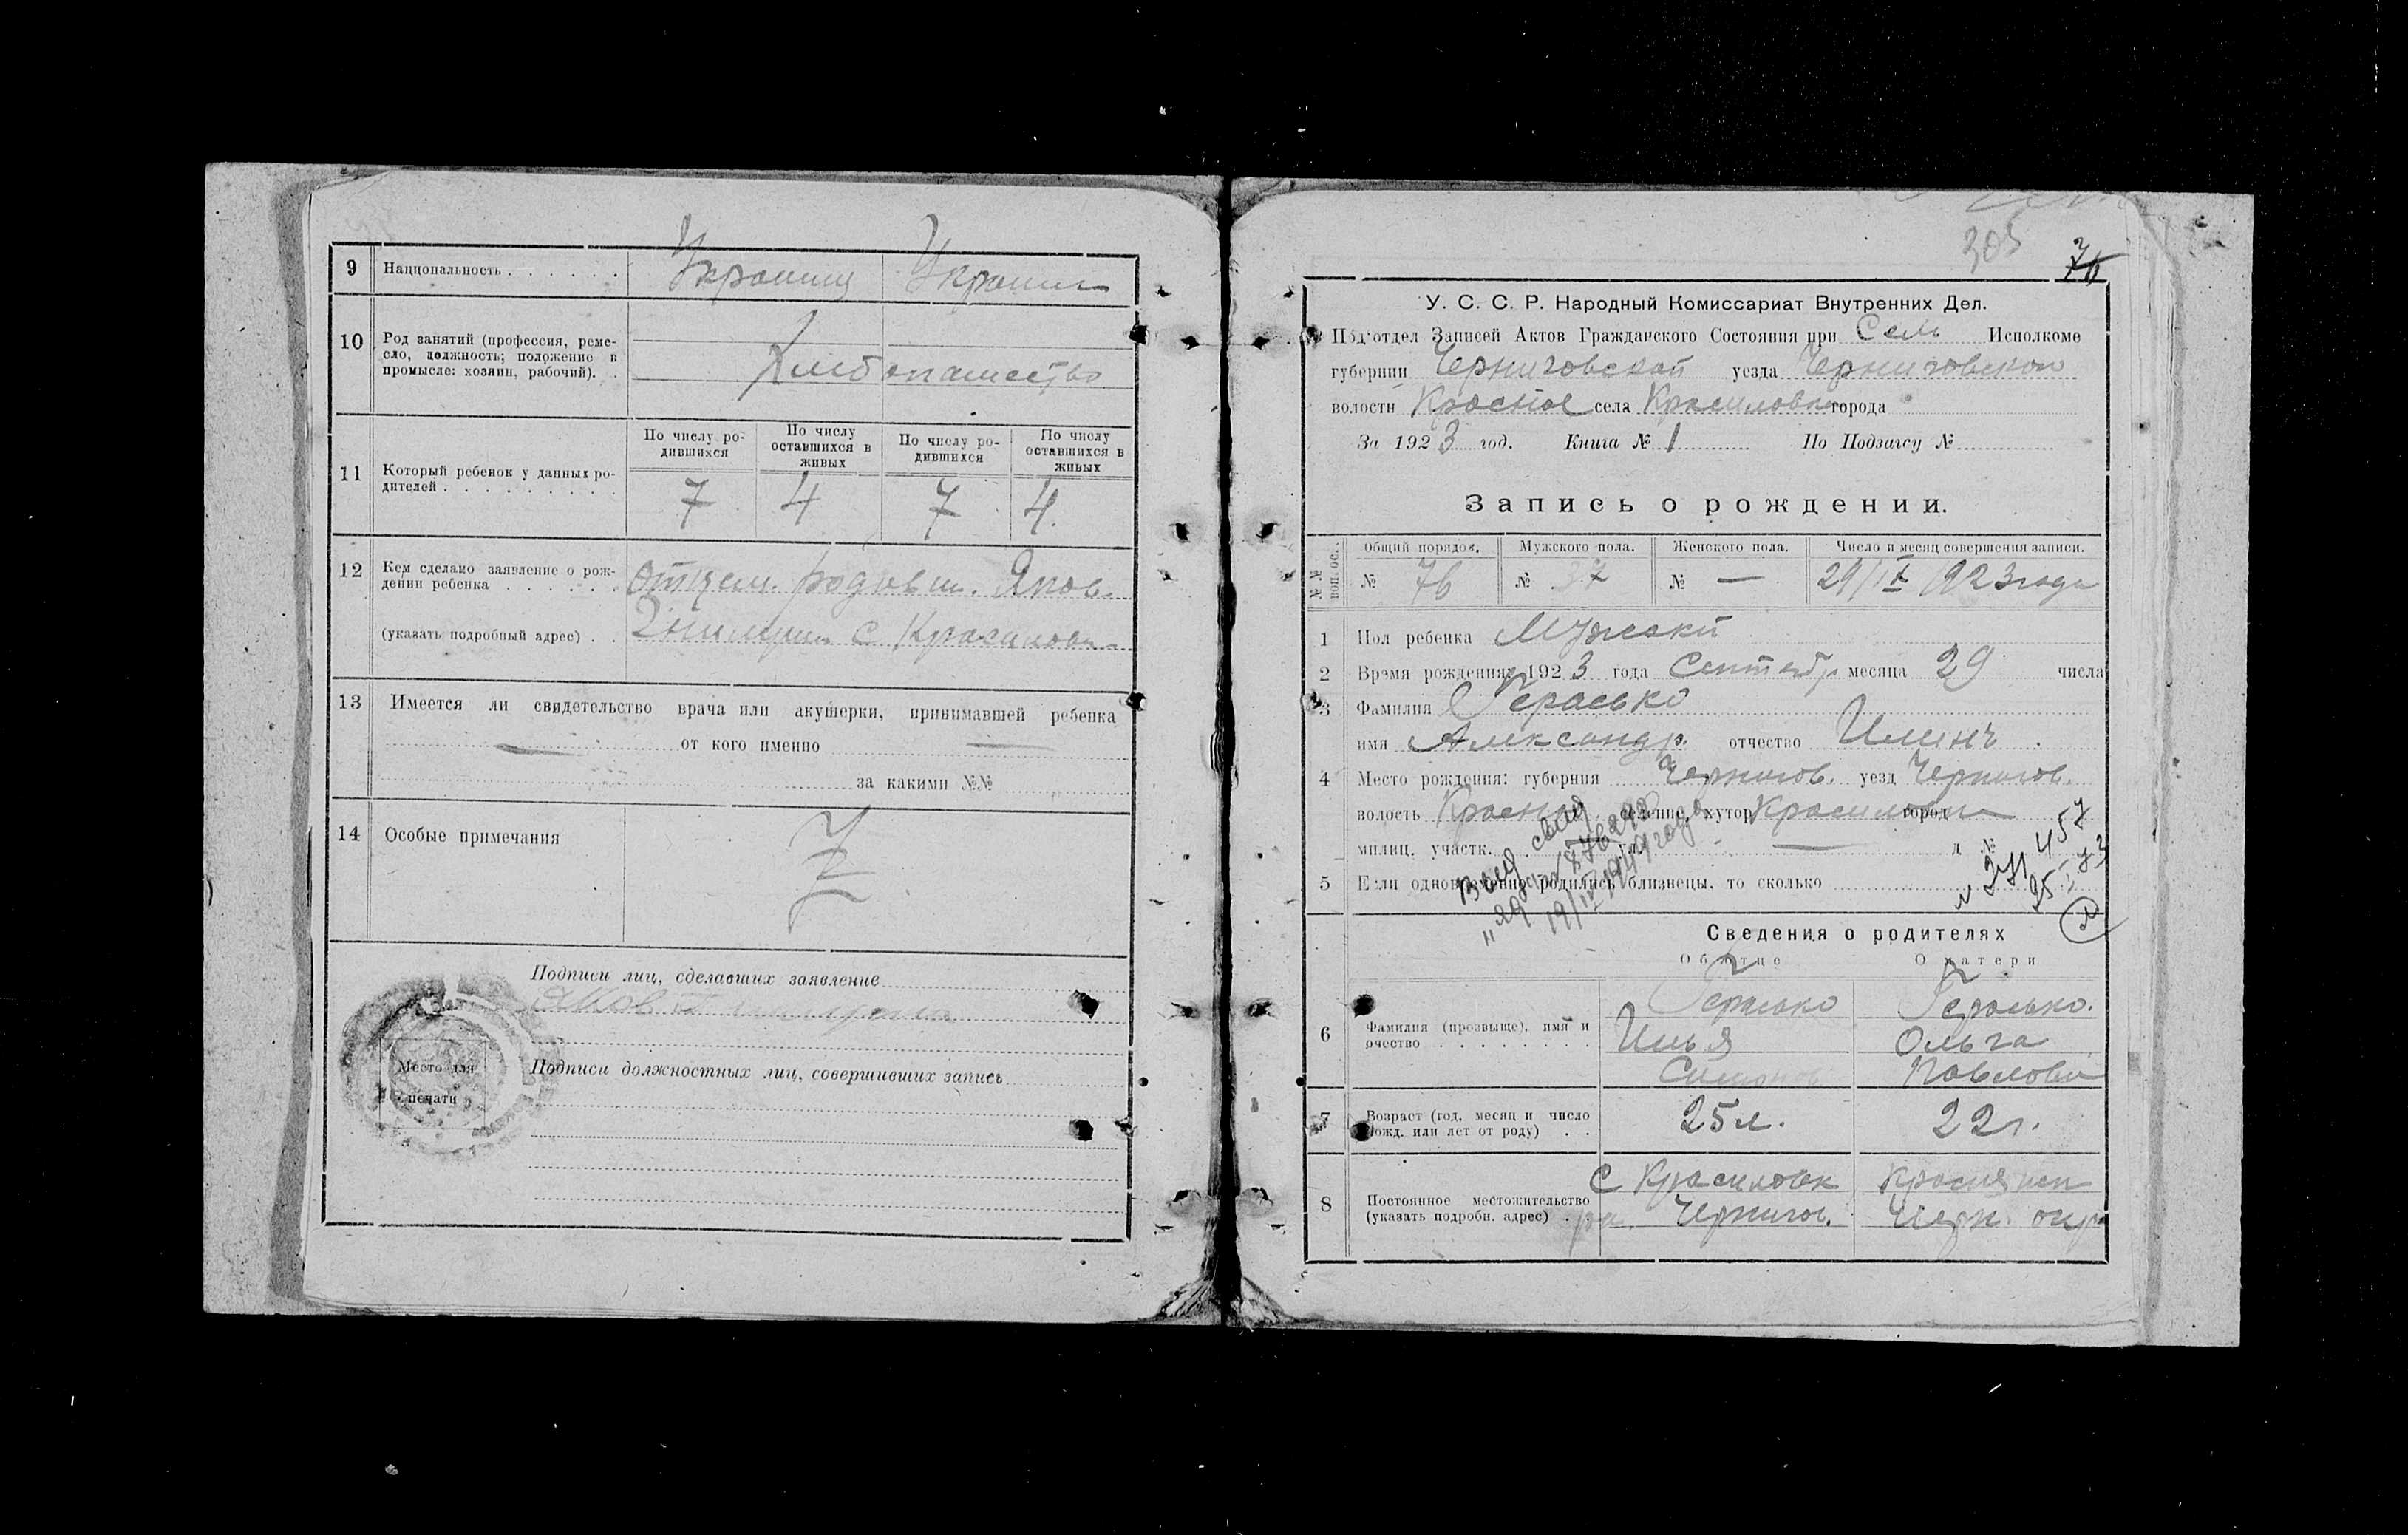 9 Национальность . . . . . . Украинц Украин
10 Род занятий (профессия, реме-
сло, должность; положение в
промысле: хозяин, рабочий). .
Хлебопашество
11 Который ребенок у данных ро-
дителей . . . . . . . . . .
По числу ро-
дившихся
По числу
оставшихся в
живых
По числу ро-
дившихся
По числу
оставшихся в
живых
7 4 7 4.
12 Кем сделано заявление о рож-
дении ребенка . . . . . . Отцем. Яков.
(указать подробный адрес) . . с Красиловк
13 Имеется ли свидетельство врача или акушерки, принимавшей ребенка
— от кого именно —
за какими №№
14 Особые примечания Z
Подписи лиц, сделавших заявление
Яков
Подписи должностных лиц, совершивших запись
Место для
печати
305
76
У. С. С. Р. Народный Комиссариат Внутренних Дел.
Подотдел Записей Актов Гражданского Состояния при Сель Исполкоме
губернии Черниговской уезда Черниговском
волости Красное села Красиловка города
За 1923 год. Книга № 1 По Подзагсу №
Запись о рождении.
№№ поп. ос. Общий порядов. Мужского пола. Женского пола. Число и месяц совершения записи.
№ 76 № 37 № — 29/IX 1923 года
1 Пол ребенка Мужский
2 Время рождения: 1923 года Сентябр месяца 29 числа
3 Фамилия Герасько
имя Александр. отчество Илинъ.
4 Место рождения: губерния Чернигов. уезд Чернигов.
волость Красной селение, хутор Красиловки город
милиц. участк. ул. — д №
5 Если одновременно родились близнецы, то сколько
19/IV 1949 года
271 457
25 I 73
Сведения о родителях
Об отце О матери
6 Фамилия (прозвыще), имя и
очество . . . . . . . .
Герасько Герасько.
Илья Ольга
Симонов Павлова
7 Возраст (год, месяц и число
рожд. или лет от роду) . . 25 л. 22 г.
8 Постоянное местожительство
(указать подробн. адрес) . .
С Красиловк
Чернигов. Черн. окр